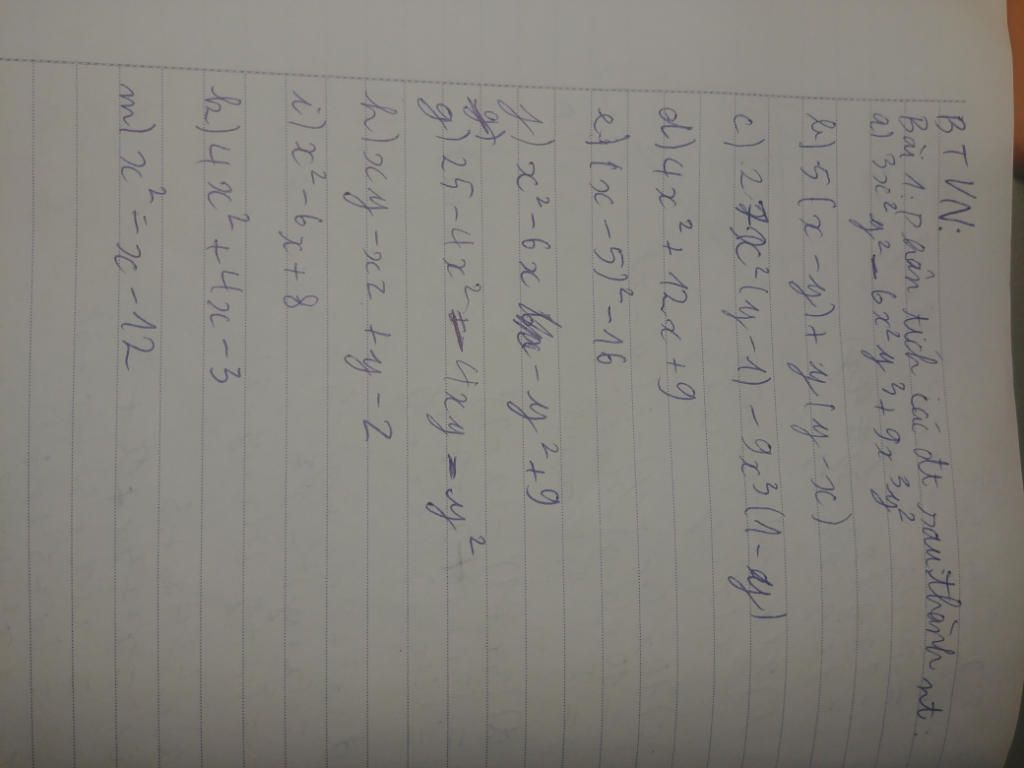 BTVN:
Bài 1. Phân tích các đt sau thành nt.
a) 3x²y² - 6x²y³ + 9x³y²
b) 5(x - y) + y(y - x)
c) 27x²(y - 1) - 9x³(1 - y)
d) 4x² + 12x + 9
e) (x - 5)² - 16
f) x² - 6x - y² + 9
g) 25 - 4x² - 4xy - y²
h) xy - xz + y - z
i) x² - 6x + 8
k) 4x² + 4x - 3
m) x² - x - 12